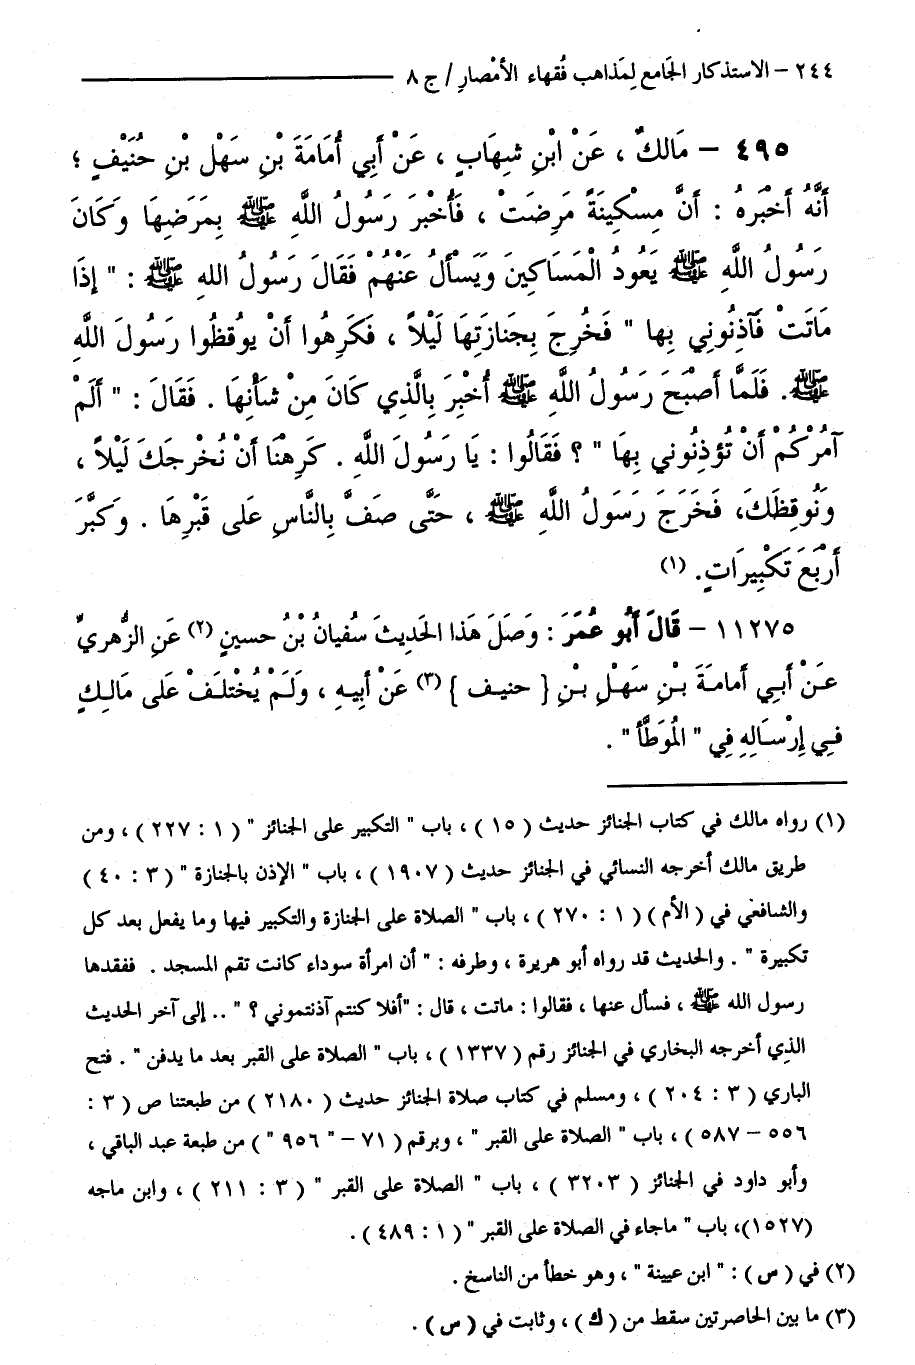 ٢٤٤ – الاستذكار الجَامع لِمَذاهب فُقهاء الأمْصارِ / ج ٨
٤٩٥ – مَالكٌ ، عَنْ ابْنِ شِهَابٍ ، عَنْ أَبِي أُمَامَةَ بْنِ سَهْلِ بْنِ حُنَيْفٍ ؛
أَنَّهُ أَخْبَرَهُ : أَنَّ مِسْكِينَةً مَرِضَتْ ، فَأُخْبِرَ رَسُولُ اللَّهِ ﷺ بِمَرَضِهَا وَكَانَ
رَسُولُ اللَّهِ ﷺ يَعُودُ الْمَسَاكِينَ وَيَسْأَلُ عَنْهُمْ فَقَالَ رَسُولُ اللهِ ﷺ : " إِذَا
مَاتَتْ فَآذِنُونِي بِها " فَخُرِجَ بِجَنازَتِهَا لَيْلاً ، فَكَرِهُوا أَنْ يوُقظُوا رَسُولَ اللَّهِ
ﷺ. فَلَمَّا أَصْبَحَ رَسُولُ اللَّهِ ﷺ أُخْبِرَ بِالَّذِي كَانَ مِنْ شَأْنِهَا . فَقَالَ : " أَلَمْ
آمُرْكُمْ أَنْ تُؤذِنُوني بِهَا " ؟ فَقَالُوا : يَا رَسُولَ اللَّهِ . كَرِهْنَا أَنْ نُخْرِجَكَ لَيْلاً ،
وَنُوقِظَكَ، فَخَرَجَ رَسَولُ اللَّهِ ﷺ ، حَتَّى صَفَّ بِالنَّاسِ عَلى قَبْرِهَا . وَكَبَّرَ
أَرْبَعَ تَكْبِيرَاتٍ. (١)
١١٢٧٥ – قَالَ أَبُو عُمَرَ : وَصَلَ هَذا الحَديثَ سُفيانُ بْنُ حسينٍ (٢) عَنِ الزُّهريِّ
عَنْ أَبِي أمامَةَ بْنِ سَهْلِ بْنِ { حنيف } (٣) عَنْ أبيهِ ، وَلَمْ يُختلَفْ عَلى مَالِكٍ
فِي إِرْسَالِهِ فِي " المُوَطَّأ " .
(١) رواه مالك في كتاب الجنائز حديث ( ١٥ ) ، باب " التكبير على الجنائز " ( ١ : ٢٢٧ ) ، ومن
طريق مالك أخرجه النسائي في الجنائز حديث ( ١٩٠٧ ) ، باب " الإذن بالجنازة " ( ٣ : ٤٠ )
والشافعي في ( الأم ) ( ١ : ٢٧٠ ) ، باب " الصلاة على الجنازة والتكبير فيها وما يفعل بعد كل
تكبيرة " . والحديث قد رواه أبو هريرة ، وطرفه : " أن امرأة سوداء كانت تقم المسجد . ففقدها
رسول الله ﷺ ، فسأل عنها ، فقالوا : ماتت ، قال : "أفلا كنتم آذنتموني ؟ " .. إلى آخر الحديث
الذي أخرجه البخاري في الجنائز رقم ( ١٣٣٧ ) ، باب " الصلاة على القبر بعد ما يدفن " . فتح
الباري ( ٣ : ٢٠٤ ) ، ومسلم في كتاب صلاة الجنائز حديث ( ٢١٨٠ ) من طبعتنا ص ( ٣ :
٥٥٦ – ٥٨٧ ) ، باب " الصلاة على القبر " ، وبرقم ( ٧١ – " ٩٥٦ " ) من طبعة عبد الباقي ،
وأبو داود في الجنائز ( ٣٢٠٣ ) ، باب " الصلاة على القبر " ( ٣ : ٢١١ ) ، وابن ماجه
(١٥٢٧)، باب " ماجاء في الصلاة على القبر " ( ١ : ٤٨٩ ) .
(٢) في ( س ) : " ابن عيينة " ، وهو خطأ من الناسخ .
(٣) ما بين الحاصرتين سقط من ( ك ) ، وثابت في ( س ) .